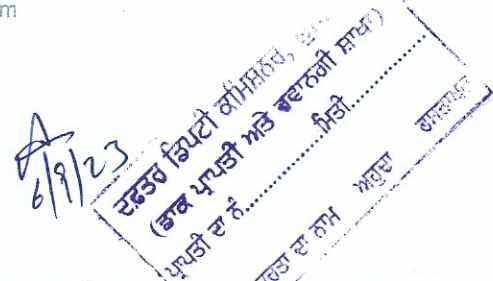 m
6/9/23
ਦਫ਼ਤਰ ਡਿਪਟੀ ਕਮਿਸ਼ਨਰ,
(ਡਾਕ ਪ੍ਰਾਪਤੀ ਅਤੇ ਰਵਾਨਗੀ ਸ਼ਾਖਾ)
ਪ੍ਰਾਪਤੀ ਦਾ ਨੰ..................ਮਿਤੀ..................
ਦਾ ਨਾਮ ਅਹੁਦਾ ਹਸਤਾਖਰ